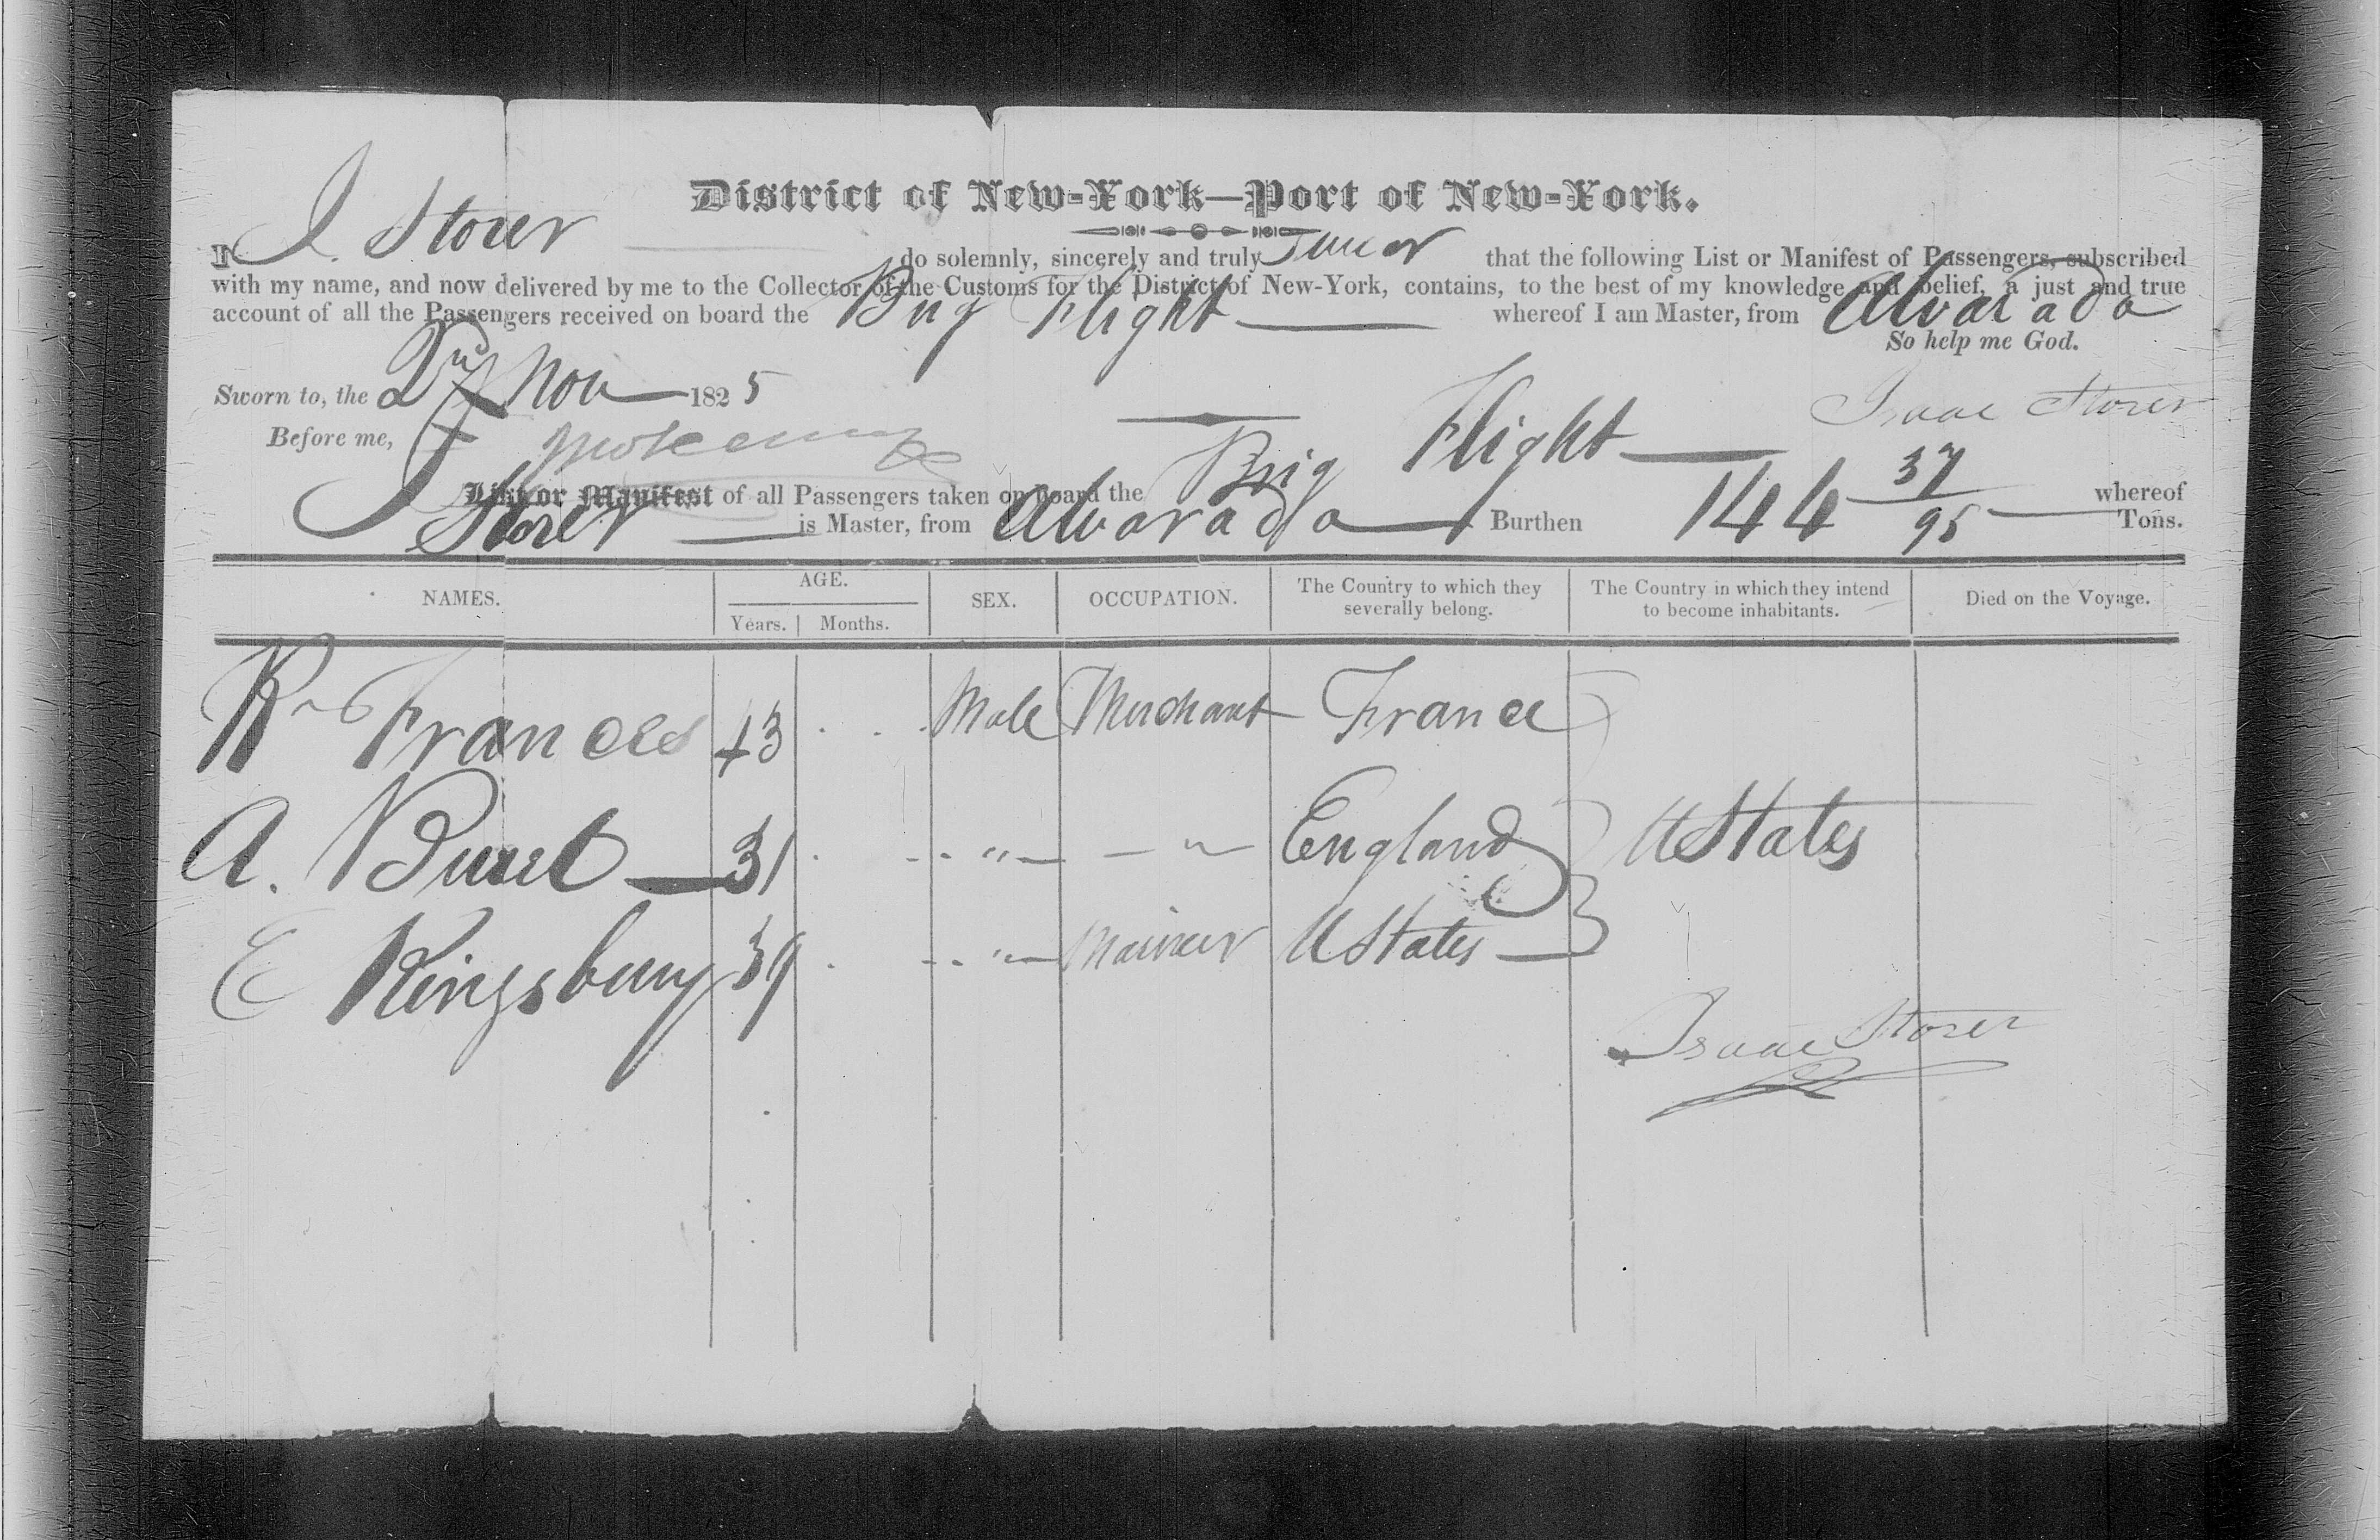 District of New-York—Port of New-York.
I J. Storer do solemnly, sincerely and truly swear that the following List or Manifest of Passengers, subscribed
with my name, and now delivered by me to the Collector of the Customs for the District of New-York, contains, to the best of my knowledge and belief, a just and true
account of all the Passengers received on board the Brig Flight whereof I am Master, from Alvarado
So help me God.
Sworn to, the 2nd Nov 1825
Isaac Storer
Before me,
List or Manifest of all Passengers taken on board the Brig Flight whereof
J Storer is Master, from Alvarado Burthen 144 37/95 Tons.
NAMES. AGE. SEX. OCCUPATION. The Country to which they severally belong. The Country in which they intend to become inhabitants. Died on the Voyage.
Years. Months.
Frances 43 Male Merchant France
A. 31 " " England U States
E Kingsbury 39 " Mariner U States
Isaac Storer